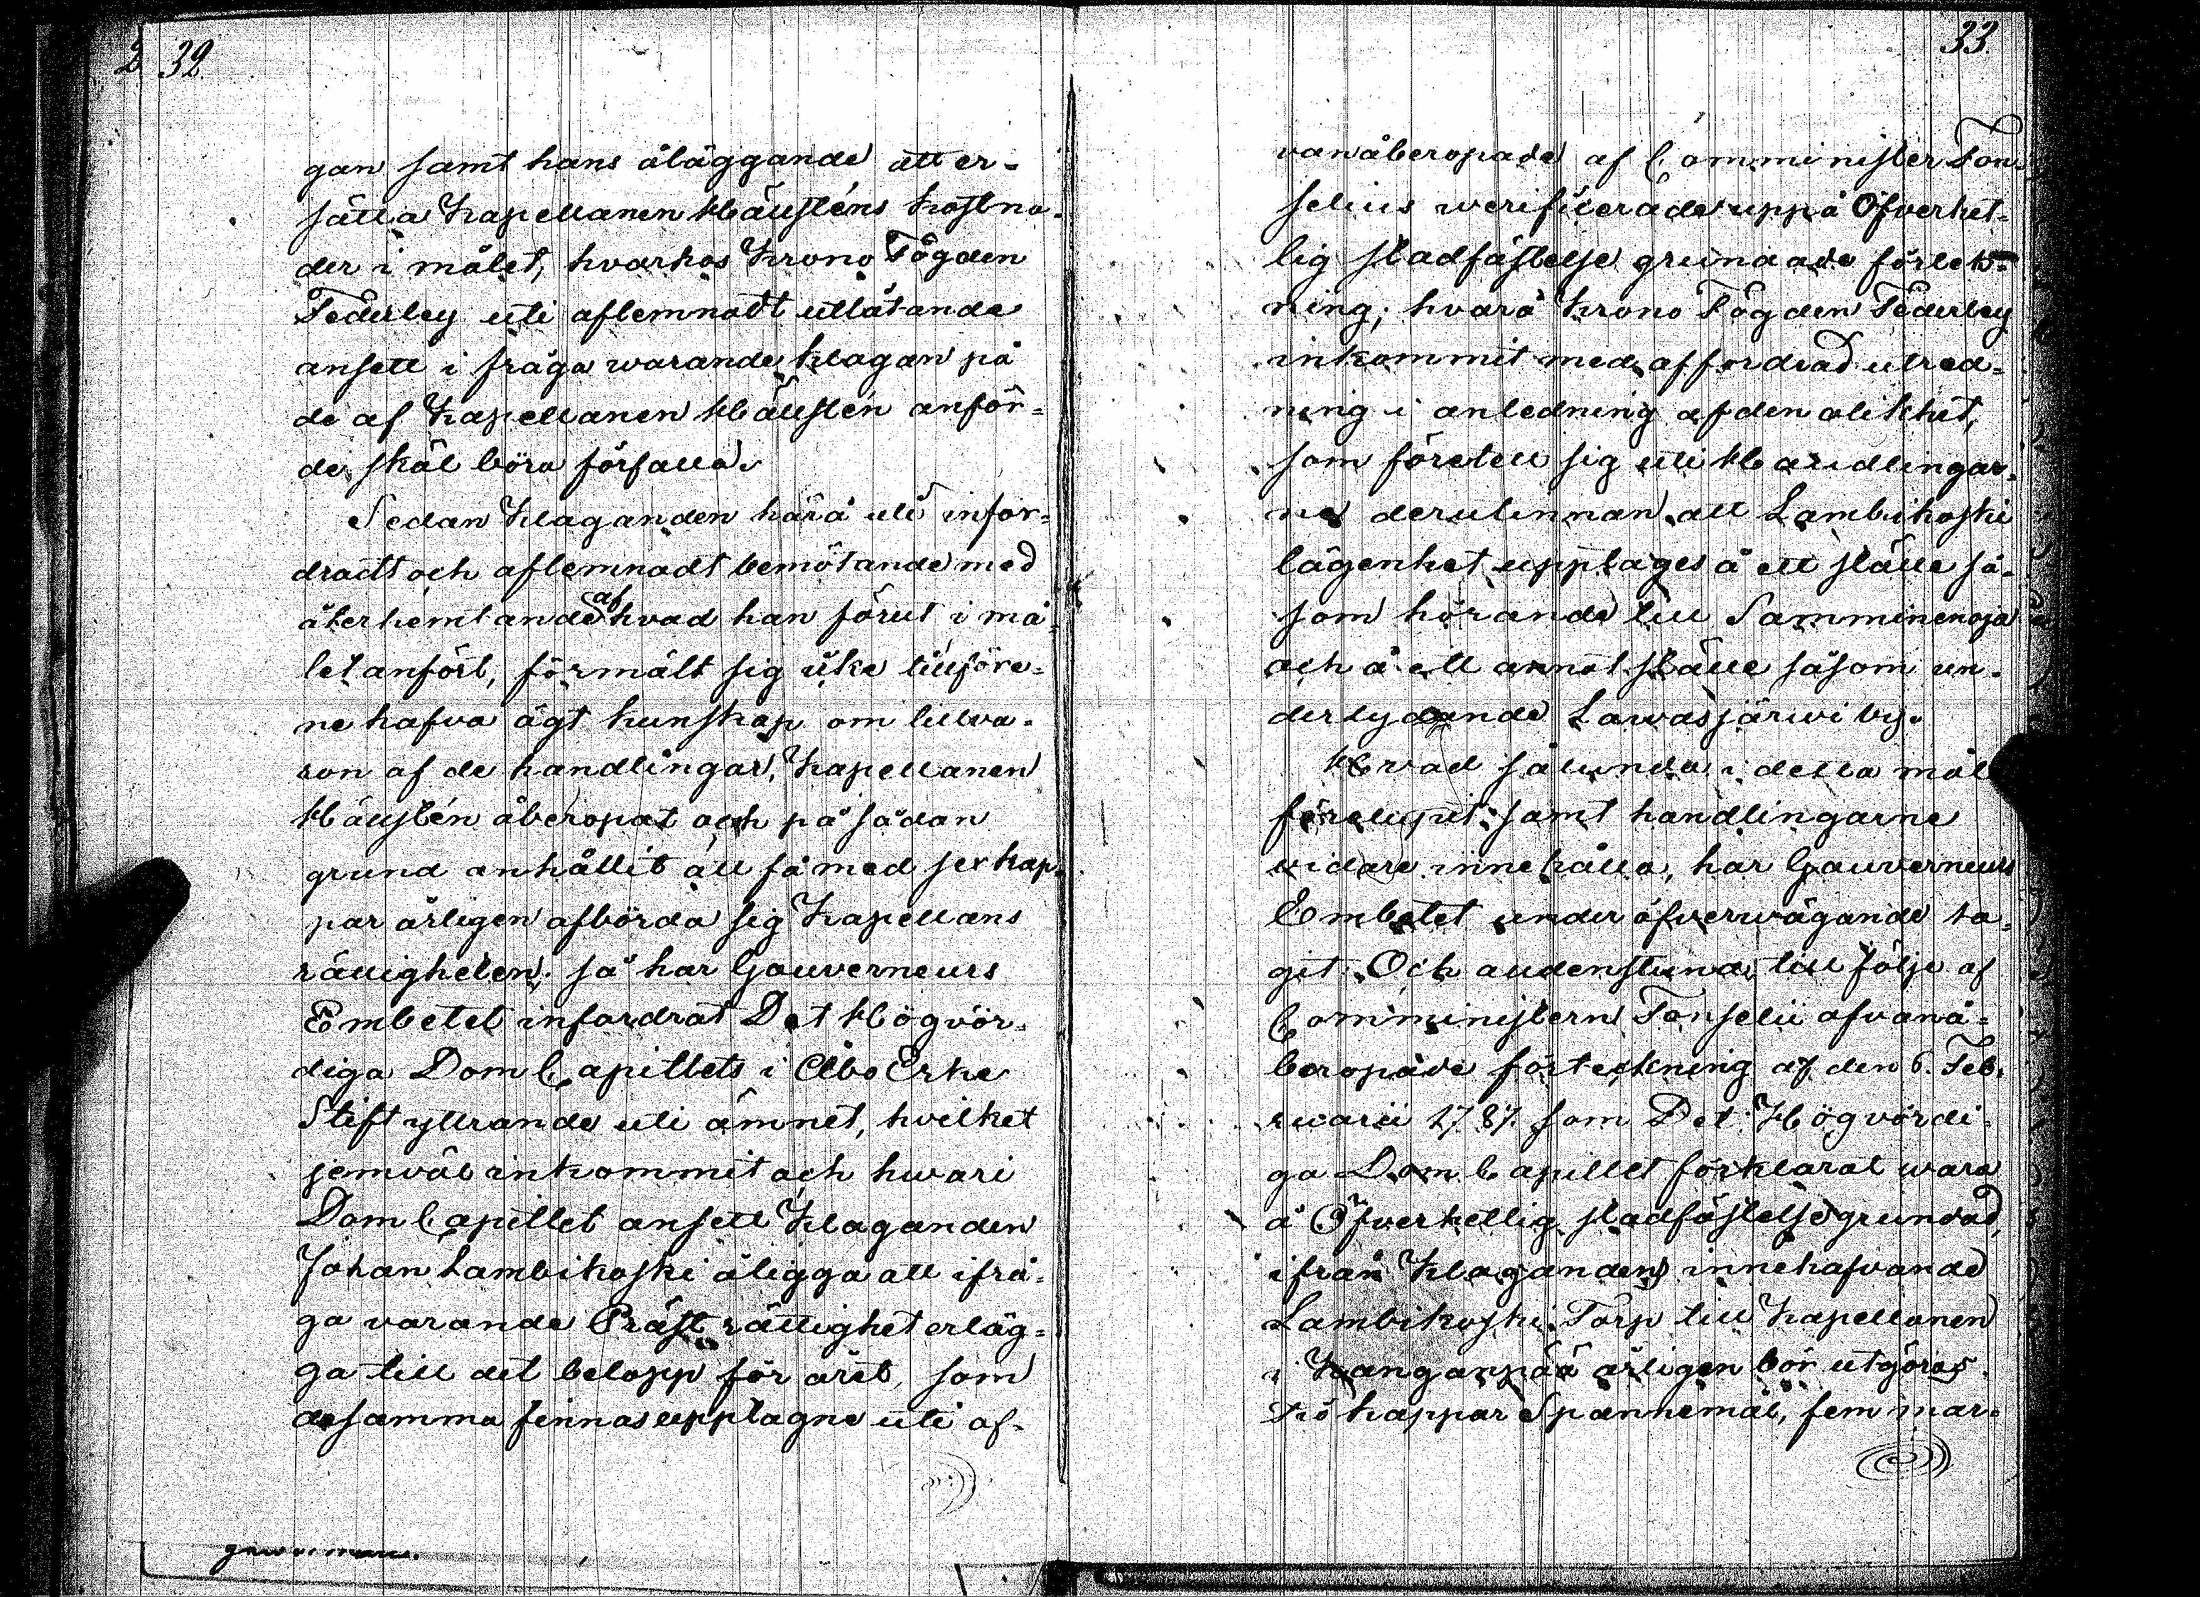 32
gan samt hans åläggande att er-
sätta Kapellanen Hällsténs kostna-
der i målet, hvarhos Krono Fogden
Federley uti aflemnadt utlåtande
ansett i fråga warande klagan på
de af Kapellanen Hällstén anför-
de skäl böra förfalla.
Sedan Klaganden härå uti infor-
dradt och aflemnadt bemötande med
återhemtande af hvad han förut i må-
let anfört, förmält sig icke tillföre-
ne hafva ägt kunskap om tillva-
ron af de handlingar, Kapellanen
Hällstén åberopat och på sådan
grund anhållit att få med sex kap-
par årligen afbörda sig Kapellans
rättigheten; så har Gouverneurs
Embetet infordrat Det Högvör-
diga Dom Capitlets i Åbo Erke
Stift yttrande uti ämnet, hvilket
jemväl inkommit och hwari
Dom Capitlet ansett Klaganden
Johan Lambikoski åligga att ifrå-
ga varande Präst rättighet erläg-
ga till det belopp för året, som
desamma finnas upptagne uti of-
33
vanåberopade af Comminister Ton-
selius werificerade uppå Öfverhet-
lig stadfästelse grundade förteck-
ning; hvarå Krono Fogden Federley
inkommit med affordrad utred-
ning i anledning af den olikhet,
som företell sig uti Handlingar-
ne derutinnan att Lambikoski
lägenhet upptages å ett ställe så-
som hörande till Samminenoja
och å ett annat ställe såsom un-
derlydande Lawasjärwi by.
Hvad sålunda i detta mål
förelupit samt handlingarne
vidare innehålla, har Gouverneurs
Embetet under öfverwägande ta-
git. Och alldenstund, till följe af
Comministern Tonselii ofvanå-
beropade förteckning af den 6. Feb-
ruarii 1787. som Det Högvördi-
ga Dom Capitlet förklarat wara
å Öfverhetlig stadfästelse grundad,
ifrån Klagandens innehafvande
Lambikoski Torp till Kapellanen
i Kanganpää årligen bör utgöras
två kappar Spannemål, fem mar-